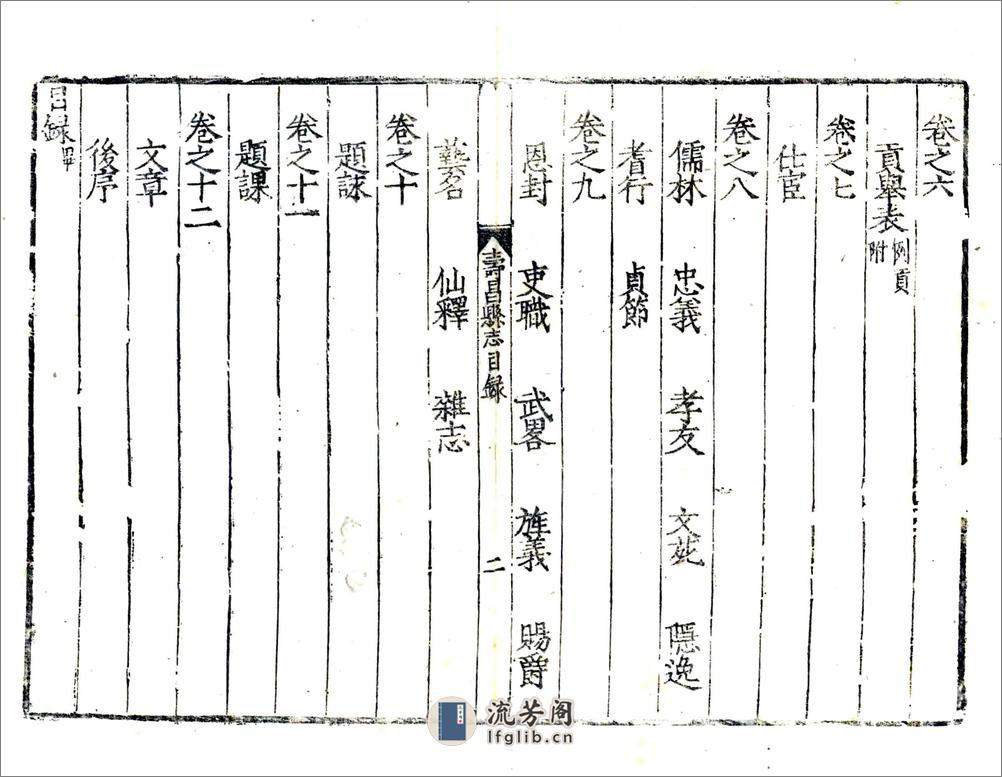 卷之六
貢舉表 例貢附
卷之七
仕宦
卷之八
儒林 忠義 孝友 文苑 隱逸
耆行 貞節
卷之九
恩封 吏職 武畧 旌義 賜爵
壽昌縣志目録 二
藝名 仙釋 雜志
卷之十
題詠
卷之十一
題課
卷之十二
文章
後序
目録畢
流芳阁
lfglib.cn